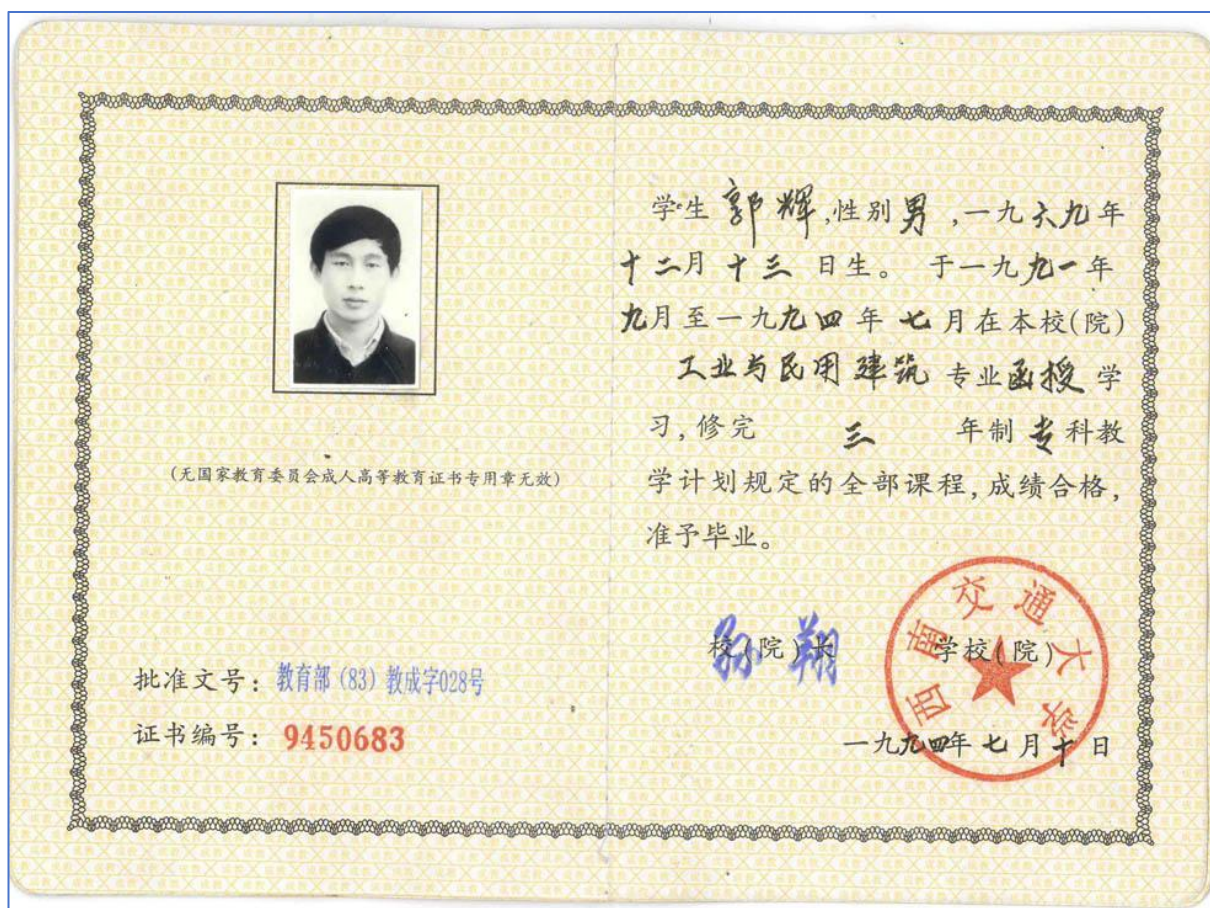 (无国家教育委员会成人高等教育证书专用章无效)
批准文号：教育部（83）教成字028号
证书编号：9450683
学生 郭辉,性别男,一九六九年
十二月十三日生。于一九九一年
九月至一九九四年七月在本校(院)
工业与民用建筑 专业函授学
习,修完 三 年制专科教
学计划规定的全部课程,成绩合格,
准予毕业。
校(院)长 孙翔 学校(院)
西南交通大学
一九九四年七月十日